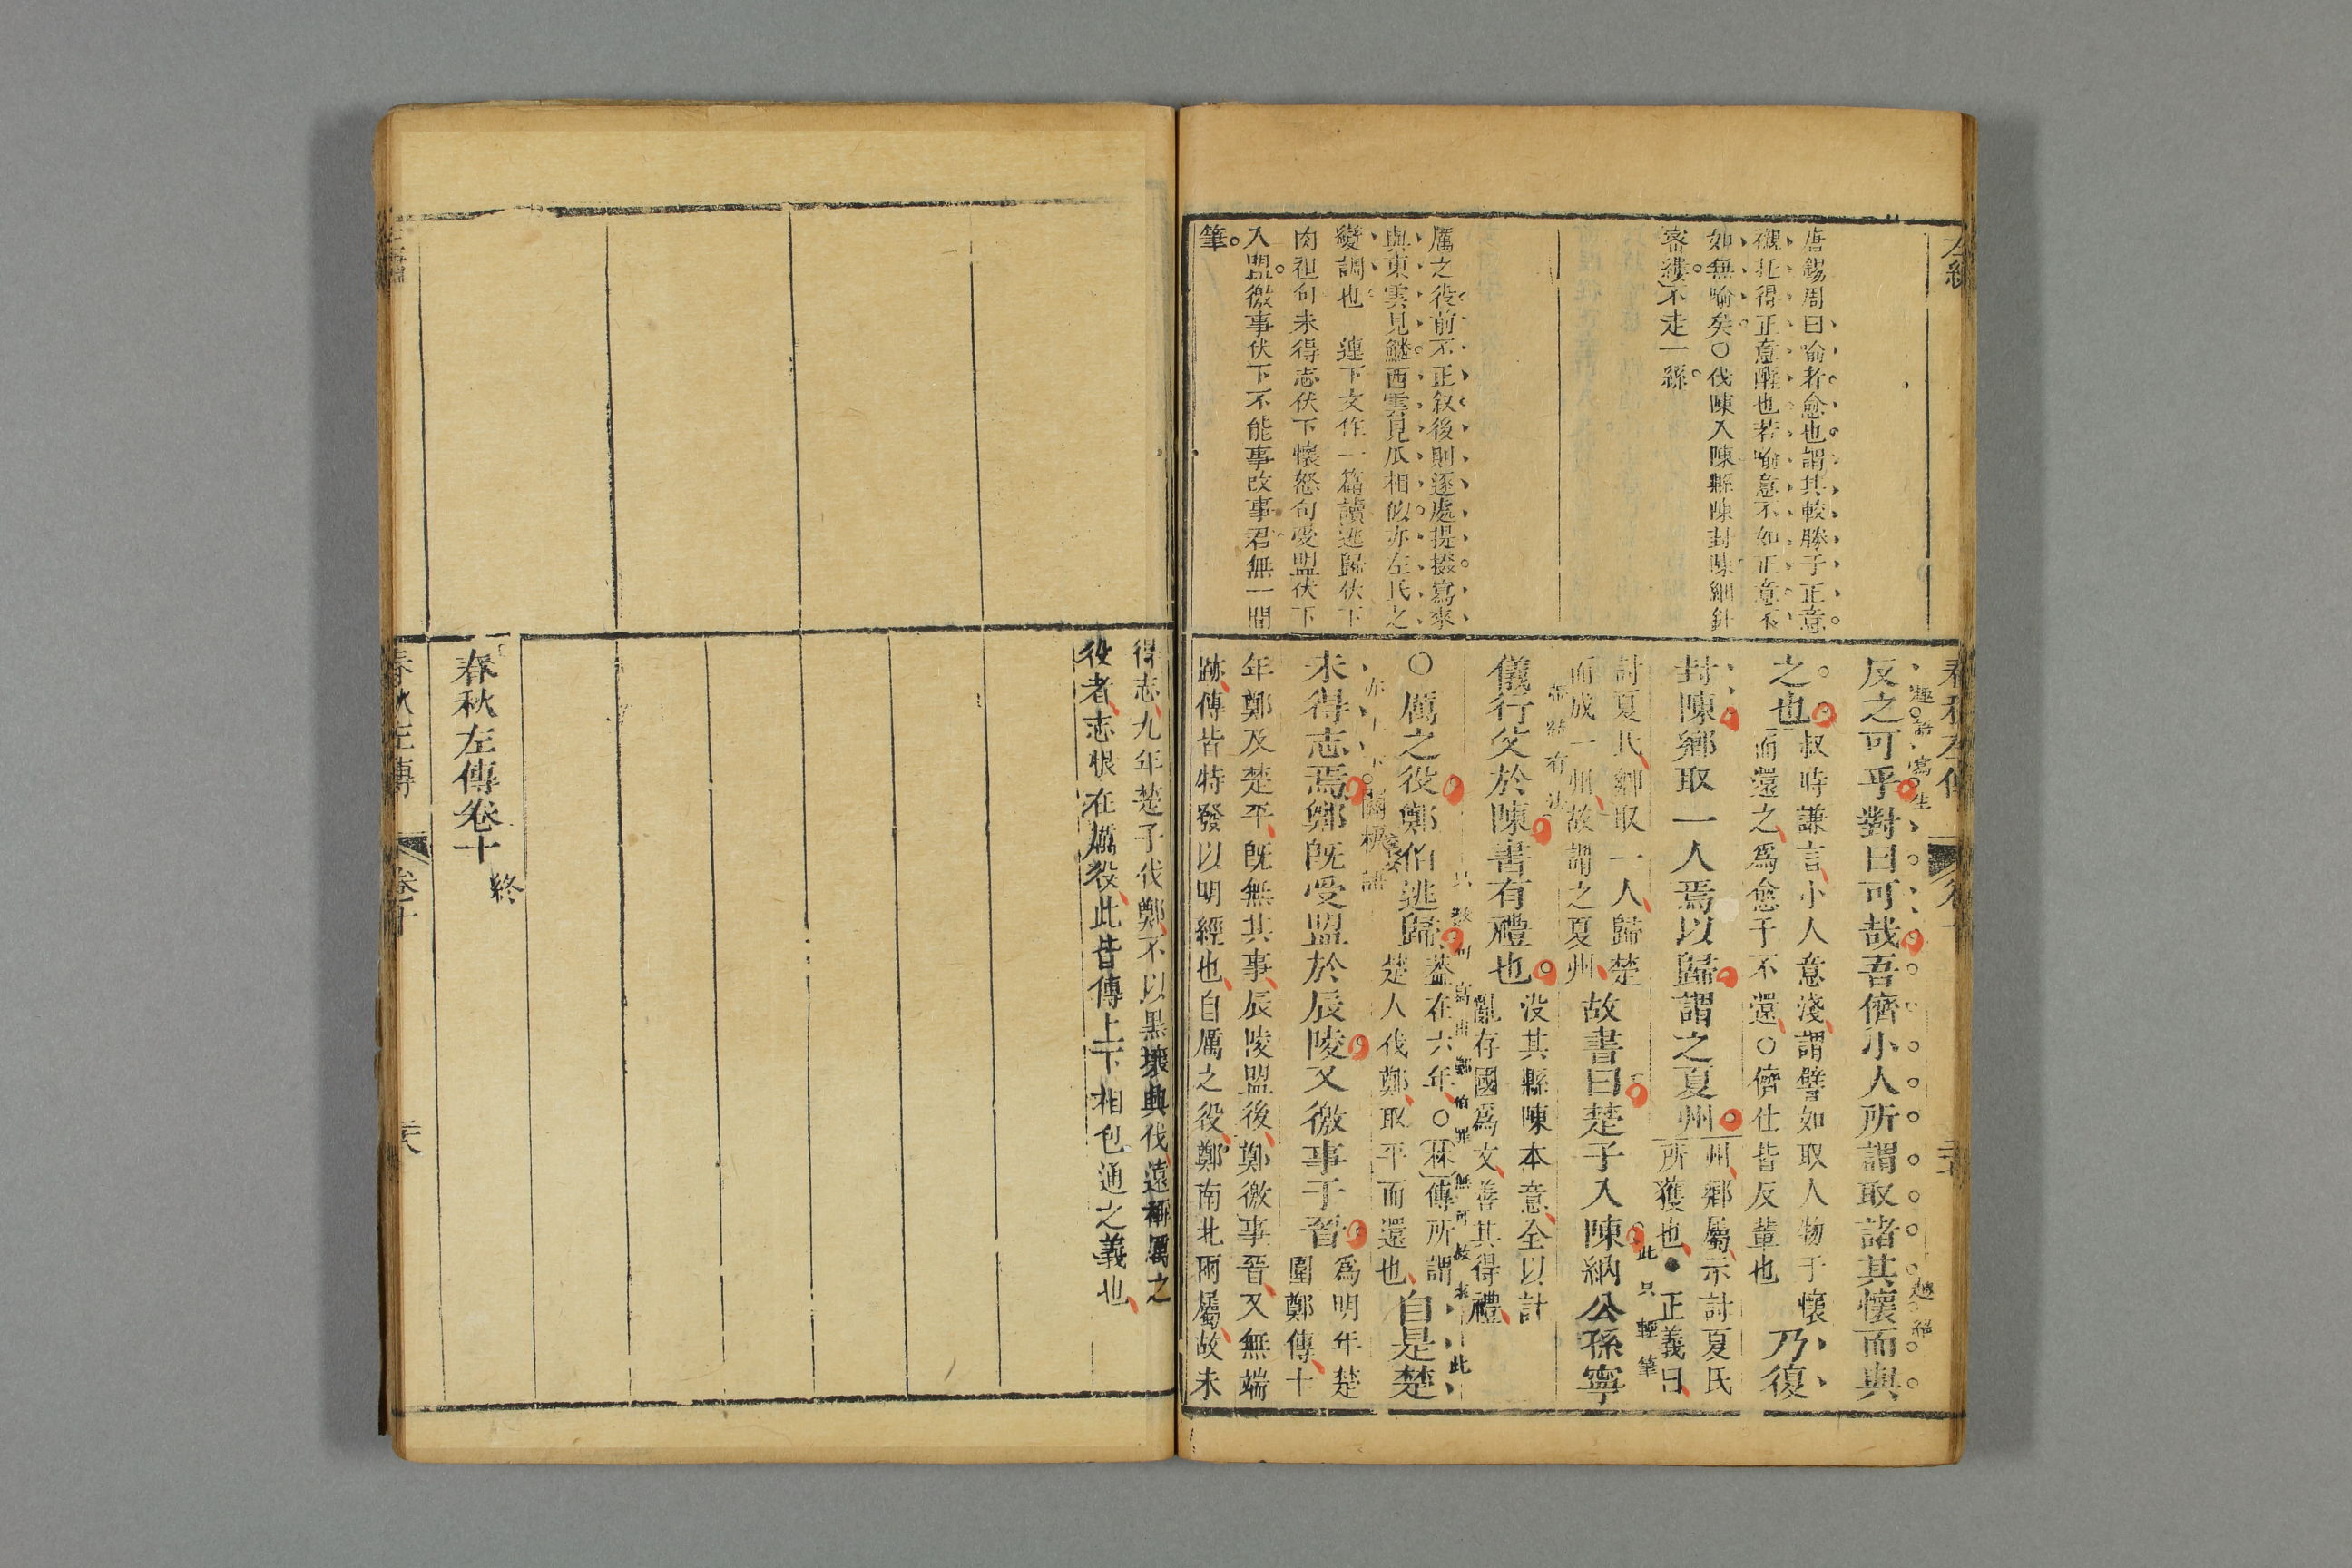 唐錫周曰喻者愈也謂其較勝于正意
襯托得正意醒也若喻意不如正意不
如無喻矣○伐陳入陳縣陳封陳細針
密縷不走一絲
厲之役前不正叙後則逐處提掇寫來
與東雲見鱗西雲見爪相似亦左氏之
變調也 連下文作一篇讀逃歸伏下
肉袒句未得志伏下懷怒句受盟伏下
入盟徼事伏下不能事改事君無一閒
筆
春秋左傳
反之可乎對曰可哉吾儕小人所謂取諸其懷而與
之也
叔時謙言小人意淺謂譬如取人物于懷
而還之爲愈于不還○儕仕皆反輩也
乃復
封陳鄉取一人焉以歸謂之夏州
州鄉屬示討夏氏
所獲也●正義曰
討夏氏鄉取一人歸楚
而成一州故謂之夏州
故書曰楚子入陳納公孫寧
此只輕筆
儀行父於陳書有禮也
没其縣陳本意全以討
亂存國爲文善其得禮
○厲之役鄭伯逃歸
蓋在六年○林傳所謂
楚人伐鄭取平而還也
自是楚
未得志焉鄭既受盟於辰陵又徼事于晉
爲明年楚
圍鄭傳十
年鄭及楚平既無其事辰陵盟後鄭徼事晉又無端
跡傳皆特發以明經也自厲之役鄭南北兩屬故未
得志九年楚子伐鄭不以黑壤興伐遠稱厲之
役者志恨在厲役此皆傳上下相包通之義也
春秋左傳卷十 終
春秋左傳 卷十